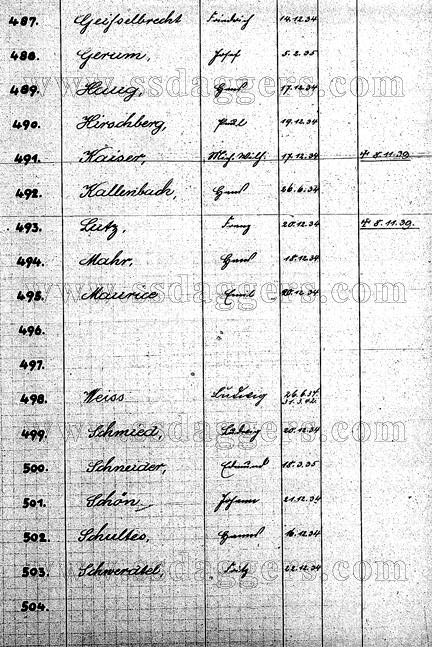 487. Geisselbrecht Friedrich 14.12.34
488. Gerum, Josef 5.2.35
www.ssdaggers.com
489. Haug, Hans 17.12.34
490. Hirschberg, Paul 19.12.34
491. Kaiser, Mich. Wilh. 17.12.34 8.11.39.
492. Kallenbach, Hans 26.6.34
493. Lutz, Franz 20.12.34 8.11.39.
494. Mahr, Hans 18.12.34
495. Maurice Emil 12.34
www.ssdaggers.com
496.
497.
498. Weiss Ludwig 26.6.34.
31.3.42.
499. Schmied, Ludwig 20.12.34
www.ssdaggers.com
500. Schneider, Edmund 18.3.35
501. Schön, Johann 21.12.34
502. Schultes, Hanns 16.12.34
503. Schwerdtel, Fritz 22.12.34
www.ssdaggers.com
504.